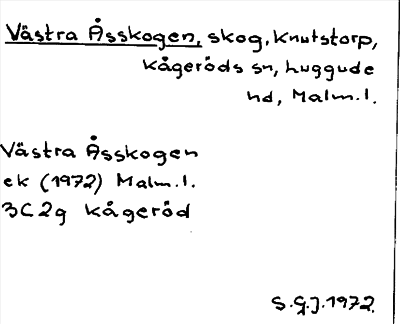 Västra Åsskogen, skog, Knutstorp,
Kågeröds sn, Luggude
hd, Malm.l.
Västra Åsskogen
ek (1972) Malm.l.
3C2g Kågeröd
S.G.J.1972.